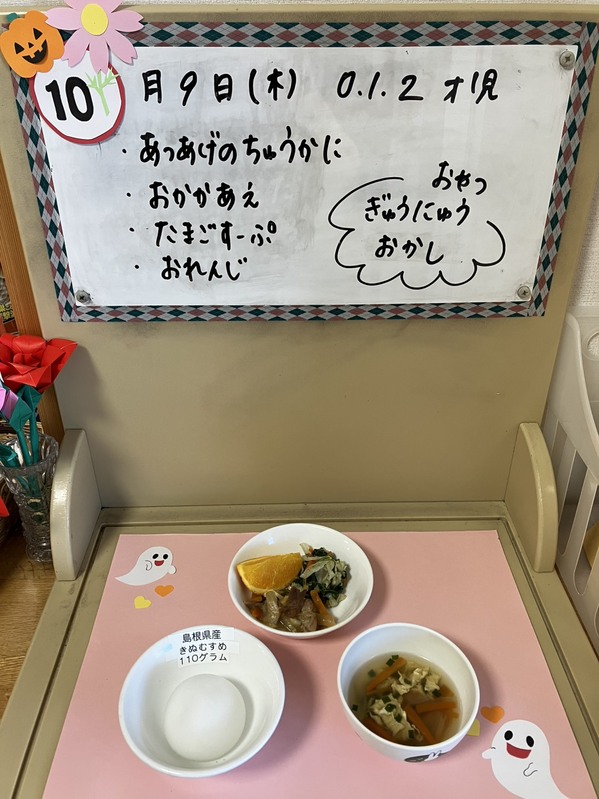 10月9日(木) 0.1.2才児
・あつあげのちゅうかに
・おかかあえ
・たまごすーぷ
・おれんじ
おやつ
ぎゅうにゅう
おかし
島根県産
きぬむすめ
110グラム